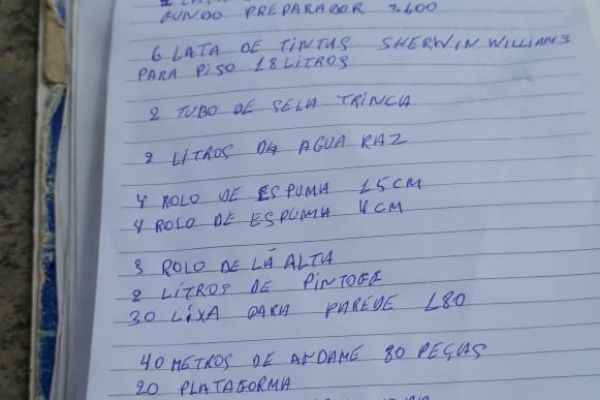 FUNDO PREPARADOR 3.600
6 LATA DE TINTAS SHERWIN WILLIAMS
PARA PISO 18 LITROS
2 TUBO DE SELA TRINCA
2 LITROS DA AGUA RAZ
4 ROLO DE ESPUMA 15CM
4 ROLO DE ESPUMA 4CM
3 ROLO DE LÁ ALTA
2 LITROS DE PINTOFF
30 LIXA PARA PAREDE 180
40 METROS DE ANDAME 80 PEÇAS
20 PLATAFORMA